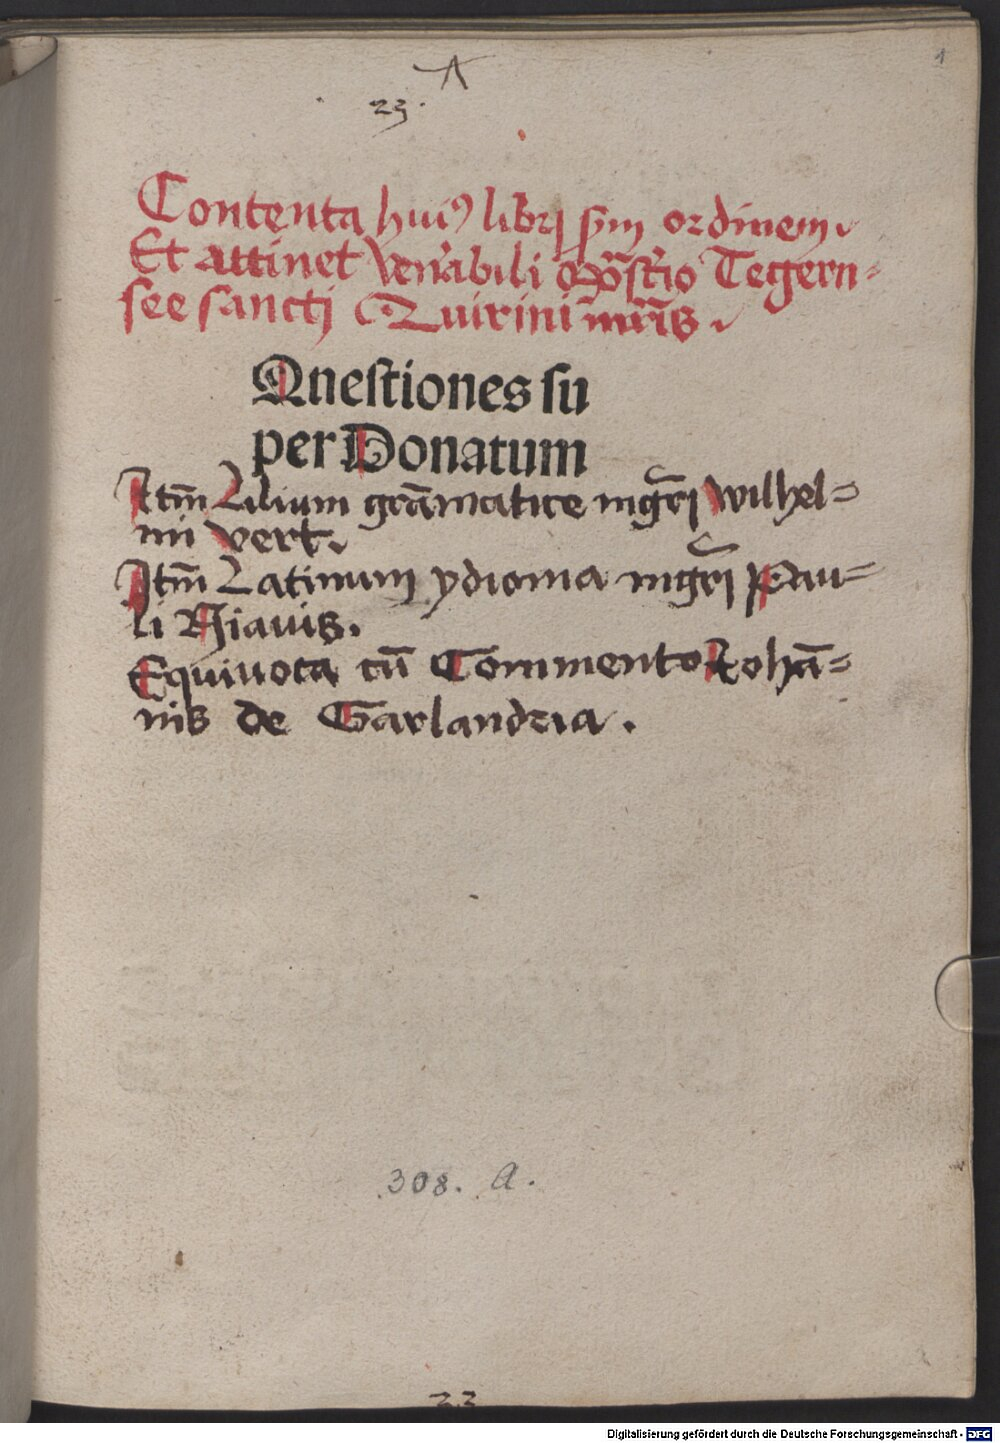 A
23.
1
Contenta huiꝯ libri s̄m ordinem.
Et attinet Ven̄abili Mōst̄io Tegern=
see sancti Quirini mr̄is.
Questiones su
per Donatum
Itm̄ Lilium gram̄matice mgr̄i Wilhel=
mi vert.
Itm̄ Latinum ydioma mgr̄i Pau=
li Niauis.
Equiuoca cū Commento Iohā=
nis de Garlandria.
308. A.
23
Digitalisierung gefördert durch die Deutsche Forschungsgemeinschaft - DFG